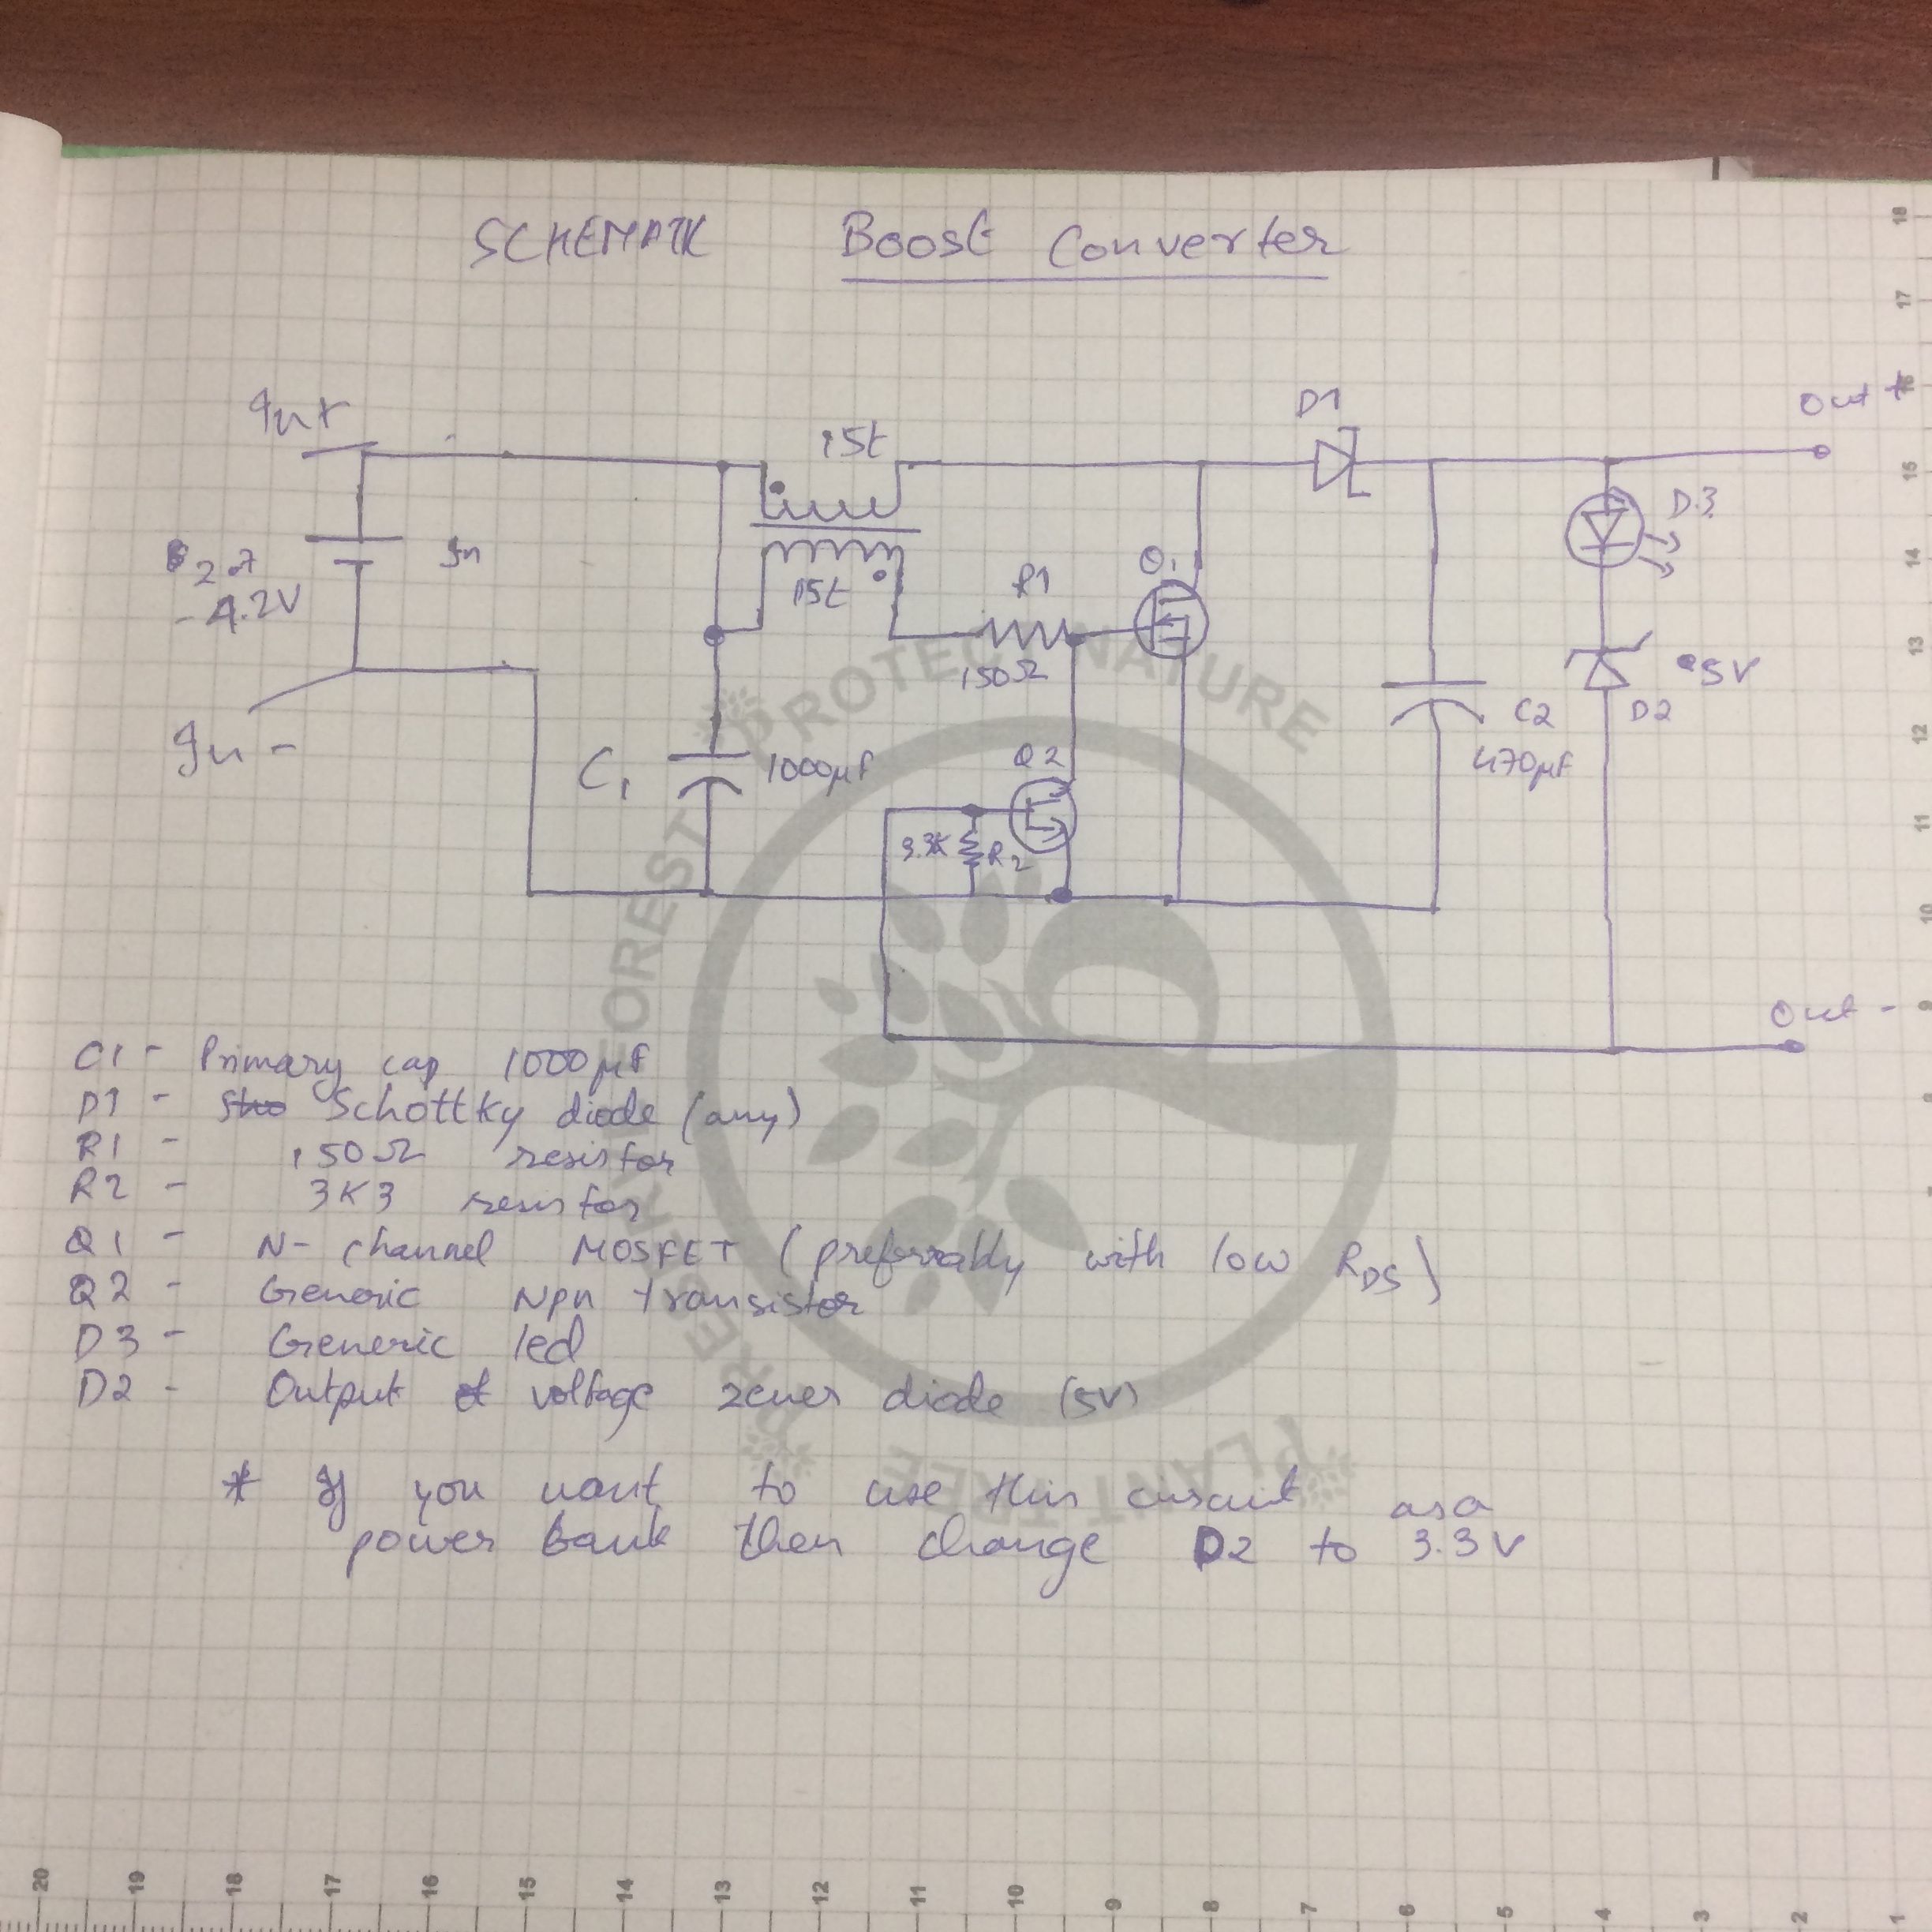 SCHEMATIC Boost Converter
In+
D1
Out +
15t
D3
2.7
- 4.2V
In
15t
R1
Q1
150Ω
5V
D2
C2
470µF
In -
C1
1000µF
Q2
3.3K
R2
Out -
C1 - Primary cap 1000µF
D1 - Schottky diode (any)
R1 - 150Ω resistor
R2 - 3K3 resistor
Q1 - N- channel MOSFET (preferrably with low RDS)
Q2 - Generic Npn transistor
D3 - Generic led
D2 - Output voltage zener diode (5V)
* If you want to use this circuit as a
power bank then change D2 to 3.3V
PROTECT NATURE
PRESERVE FOREST
PLANT TREE
18
17
16
15
14
13
12
11
10
9
8
7
20 19 18 17 16 15 14 13 12 11 10 9 8 7 6 5 4 3 2 1